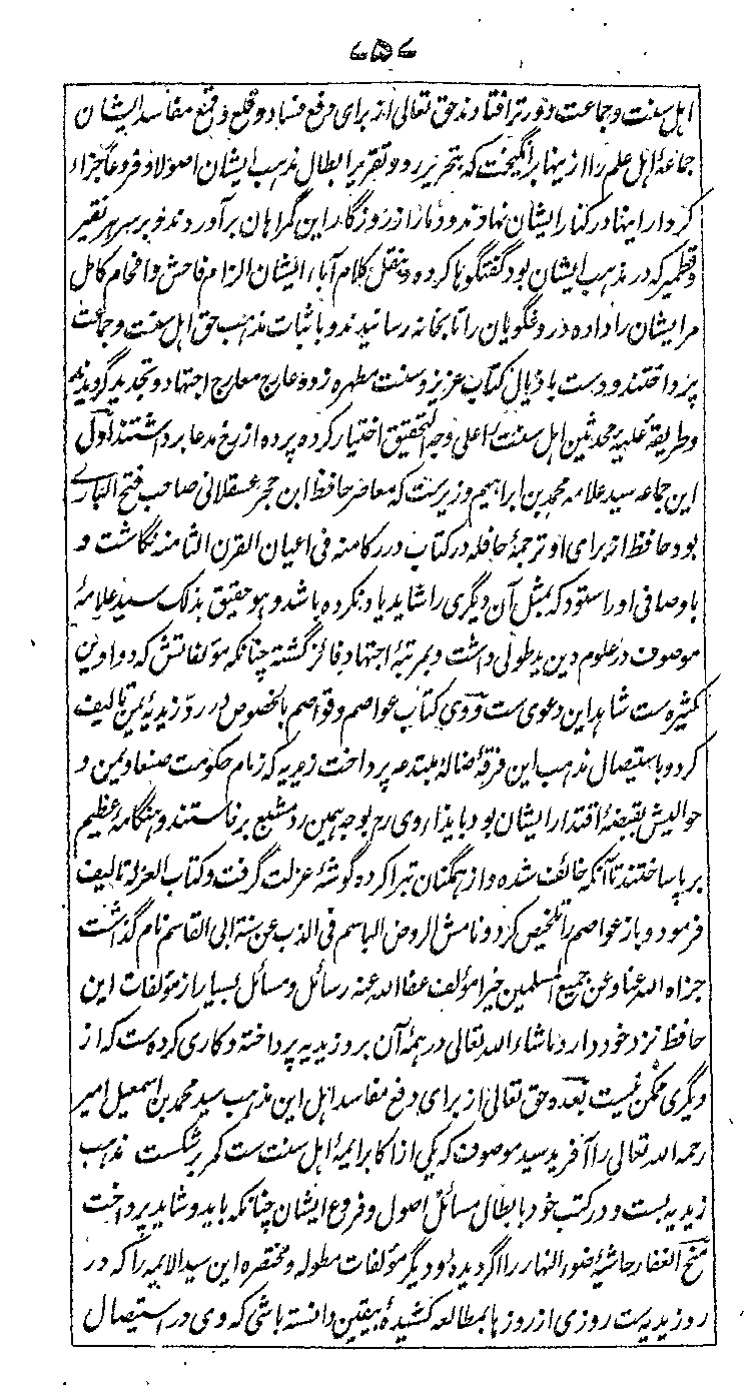 ۷۵۷
اہل سنت وجماعت دورتر افتادند حق تعالی از برای رفع فساد و قلع و قمع مفاسد ایشان
جماعۂ اہل علم را از ینہا برانگیخت کہ بتحریر رد و تقریر ابطال مذہب ایشان اصولا و فروعا جزاء
کردار اینہا در کنار ایشان نہادند و دمار از روزگار این گمراہان برآوردند و بر سر ہر نقیر
و قطمیر کہ در مذہب ایشان بود گفتگوہا کردہ و بنقل کلام آباء ایشان الزام فاحش و افحام کامل
مر ایشان را دادہ دروغگویان را تا بخانہ رسانیدند و باثبات مذہب حق اہل سنت وجماعت
پرداختند و دست باذیال کتاب عزیز و سنت مطہرہ زدہ عارج معارج اجتہاد و تجدید گردیدند
و طریقۂ علیۂ محدثین اہل سنت را علی وجہ التحقیق اختیار کردہ پردہ از رخ مدعا برداشتند اول
این جماعہ سید علامہ محمد بن ابراہیم وزیرست کہ معاصر حافظ ابن حجر عسقلانی صاحب فتح الباری
بود حافظ از برای او ترجمۂ حافلہ در کتاب درر کامنہ فی اعیان القرن الثامنہ نگاشت و
باوصافی او را ستود کہ بمثل آن دیگری را شاید یاد نکردہ باشد و ہو حقیق بذلک سید علامۂ
موصوف در علوم دین ید طولی داشت و بمرتبۂ اجتہاد فائز گشتہ چنانکہ مؤلفاتش کہ دواوین
کثیرہ ست شاہد این دعوی ست و وی کتاب عواصم و قواصم بالخصوص در رد زیدیۂ یمن تالیف
کرد و باستیصال مذہب این فرقۂ ضالۂ مبتدعہ پرداخت زیدیہ کہ زمام حکومت صنعا و یمن و
حوالیش بقبضۂ اقتدار ایشان بود بایذاء وی رح بوجہ ہمین رد مشبع برخاستند و ہنگامۂ عظیم
برپا ساختند تا آنکہ خائف شدہ و از ہمگنان تبرا کردہ گوشۂ عزلت گرفت و کتاب العزلہ تالیف
فرمود و باز عواصم را تلخیص کرد و نامش الروض الباسم فی الذب عن سنۃ ابی القاسم نام گذاشت
جزاہ اللہ عنا و عن جمیع المسلمین خیرا مؤلف عفا اللہ عنہ رسائل و مسائل بسیار از مؤلفات این
حافظ نزد خود دارد ماشاء اللہ تعالی در ہمۂ آن برد زیدیہ پرداختہ و کاری کردہ ست کہ از
دیگری ممکن نیست بعدہ حق تعالی از برای دفع مفاسد اہل این مذہب سید محمد بن اسمعیل امیر
رحمہ اللہ تعالی را آفرید سید موصوف کہ یکی از اکابر ایمۂ اہل سنت ست کمر بر شکست مذہب
زیدیہ بست و در کتب خود بابطال مسائل اصول و فروع ایشان چنانکہ باید و شاید پرداخت
منح الغفار حاشیۂ ضوء النہار را اگر دیدۂ و دیگر مؤلفات مطولہ و مختصرہ این سید الایمہ را کہ در
رد زیدیہ ست روزی از روزہا بمطالعہ کشیدۂ بیقین دانستہ باشی کہ وی در استیصال